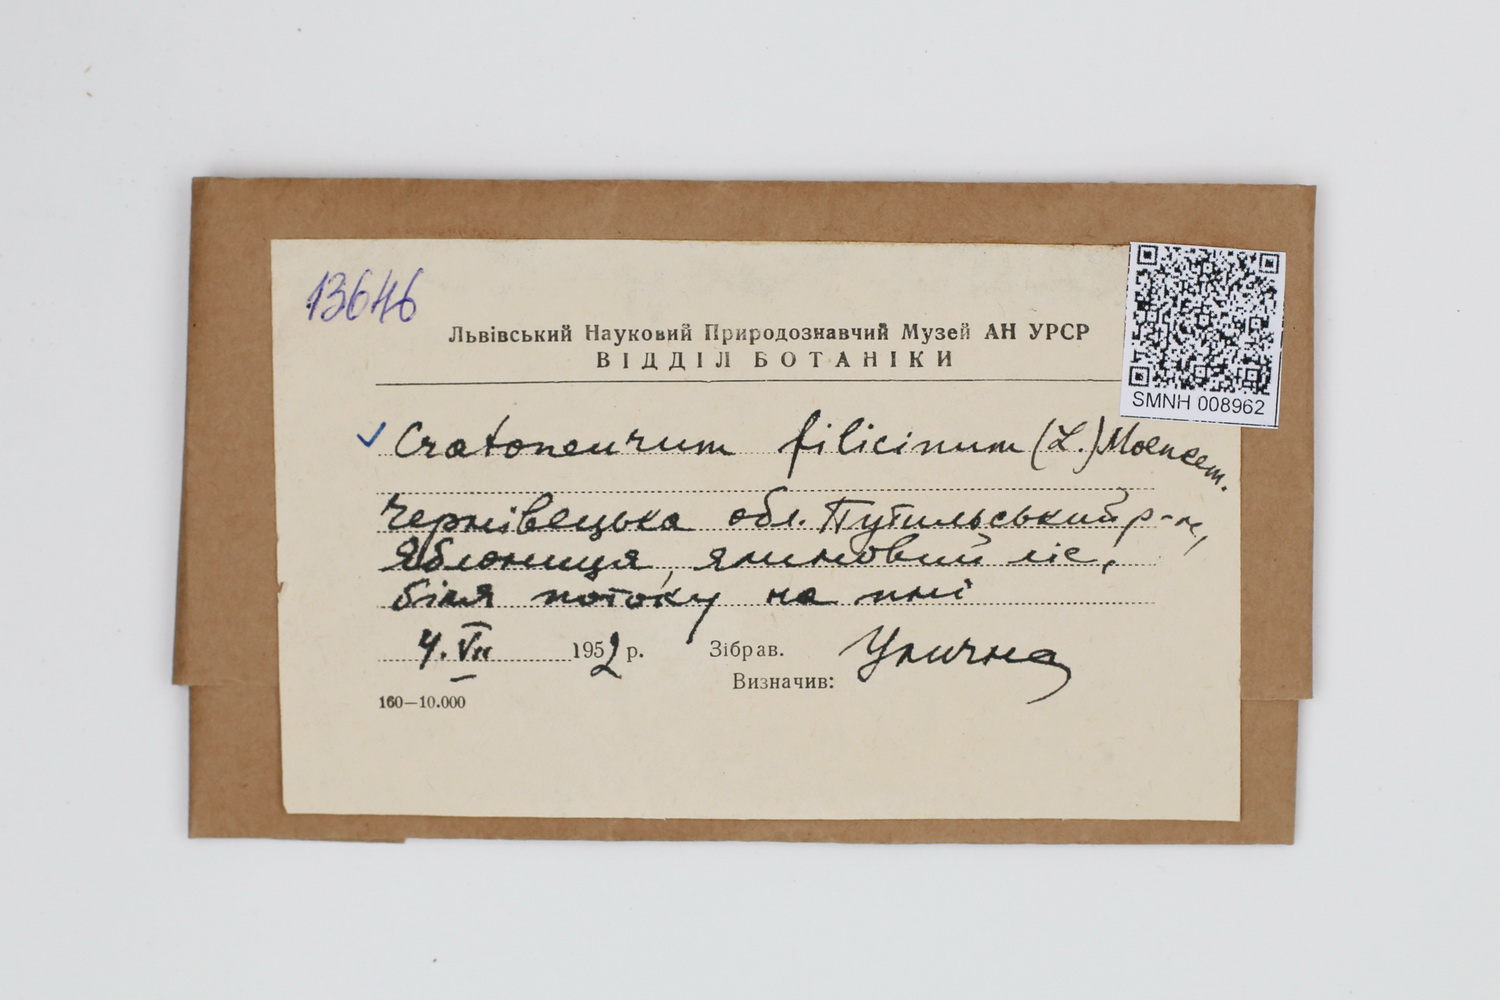 13646
Львівський Науковий Природознавчий Музей АН УРСР
ВІДДІЛ БОТАНІКИ
SMNH 008962
✓ Cratoneurum filicinum (L.) Moenkem.
Чернівецька обл. Путильський р-н,
Яблониця, ялиновий ліс,
біля потоку на пні
4. VII 1952 р. Зібрав. Улична
Визначив:
160—10.000